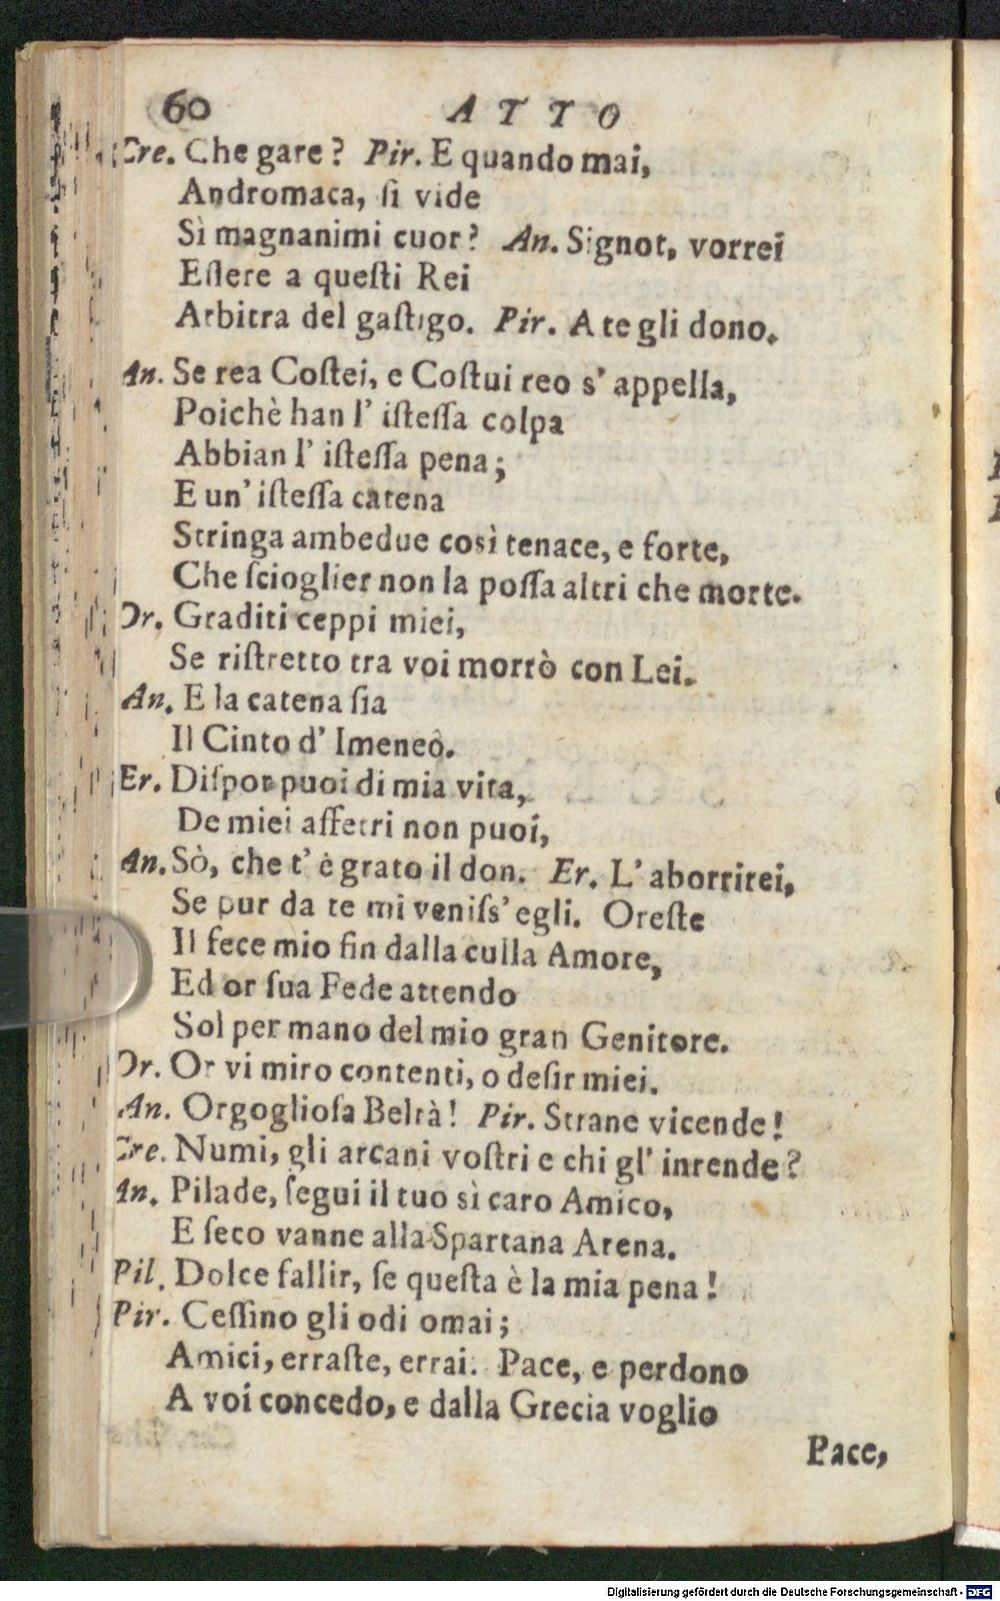 60 ATTO
Cre. Che gare? Pir. E quando mai,
Andromaca, ſi vide
Sì magnanimi cuor? An. Signor, vorrei
Eſſere a queſti Rei
Arbitra del gaſtigo. Pir. A te gli dono.
An. Se rea Coſtei, e Coſtui reo s' appella,
Poichè han l' iſteſſa colpa
Abbian l' iſteſſa pena;
E un' iſteſſa catena
Stringa ambedue così tenace, e forte,
Che ſcioglier non la poſſa altri che morte.
Or. Graditi ceppi miei,
Se riſtretto tra voi morrò con Lei.
An. E la catena ſia
Il Cinto d' Imeneo.
Er. Diſpor puoi di mia vita,
De miei affetti non puoi,
An. Sò, che t' è grato il don. Er. L' aborrirei,
Se pur da te mi veniſs' egli. Oreſte
Il fece mio fin dalla culla Amore,
Ed or ſua Fede attendo
Sol per mano del mio gran Genitore.
Or. Or vi miro contenti, o deſir miei.
An. Orgoglioſa Beltà! Pir. Strane vicende!
Cre. Numi, gli arcani voſtri e chi gl' intende?
An. Pilade, ſegui il tuo sì caro Amico,
E ſeco vanne alla Spartana Arena.
Pil. Dolce fallir, ſe queſta è la mia pena!
Pir. Ceſſino gli odi omai;
Amici, erraſte, errai. Pace, e perdono
A voi concedo, e dalla Grecia voglio
Pace,
Digitalisierung gefördert durch die Deutsche Forschungsgemeinschaft - DFG